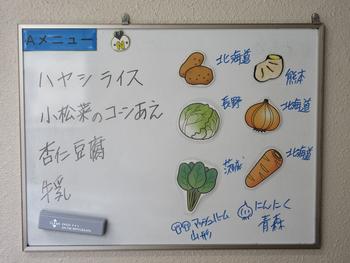 Aメニュー
ハヤシライス
小松菜のコーンあえ
杏仁豆腐
牛乳
北海道
熊本
長野
北海道
茨城
北海道
マッシュルーム
にんにく
青森